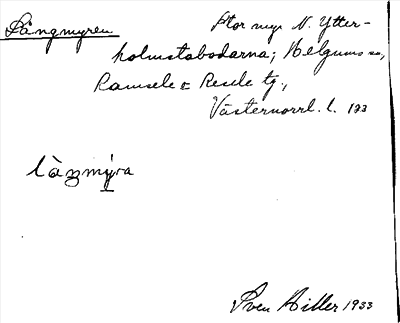 Långmyren Stor myr N. Ytter-
holmstabodarna; Helgums sn,
Ramsele o Resele tg.,
Västernorrl. l. 193
làŋmýra
Sven Hiller 1933